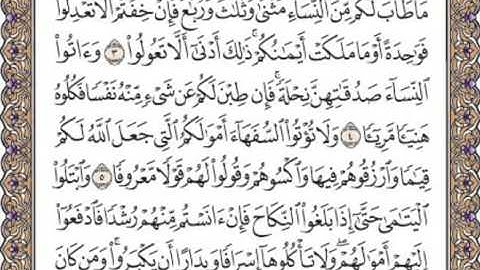 مَا طَابَ لَكُم مِّنَ ٱلنِّسَآءِ مَثۡنَىٰ وَثُلَٰثَ وَرُبَٰعَۖ فَإِنۡ خِفۡتُمۡ أَلَّا تَعۡدِلُواْ
فَوَٰحِدَةً أَوۡ مَا مَلَكَتۡ أَيۡمَٰنُكُمۡۚ ذَٰلِكَ أَدۡنَىٰٓ أَلَّا تَعُولُواْ ٣ وَءَاتُواْ
ٱلنِّسَآءَ صَدُقَٰتِهِنَّ نِحۡلَةٗۚ فَإِن طِبۡنَ لَكُمۡ عَن شَيۡءٖ مِّنۡهُ نَفۡسٗا فَكُلُوهُ
هَنِيٓـٔٗا مَّرِيٓـٔٗا ٤ وَلَا تُؤۡتُواْ ٱلسُّفَهَآءَ أَمۡوَٰلَكُمُ ٱلَّتِي جَعَلَ ٱللَّهُ لَكُمۡ
قِيَٰمٗا وَٱرۡزُقُوهُمۡ فِيهَا وَٱكۡسُوهُمۡ وَقُولُواْ لَهُمۡ قَوۡلٗا مَّعۡرُوفٗا ٥ وَٱبۡتَلُواْ
ٱلۡيَتَٰمَىٰ حَتَّىٰٓ إِذَا بَلَغُواْ ٱلنِّكَاحَ فَإِنۡ ءَانَسۡتُم مِّنۡهُمۡ رُشۡدٗا فَٱدۡفَعُوٓاْ
إِلَيۡهِمۡ أَمۡوَٰلَهُمۡۖ وَلَا تَأۡكُلُوهَآ إِسۡرَافٗا وَبِدَارًا أَن يَكۡبَرُواْۚ وَمَن كَانَ